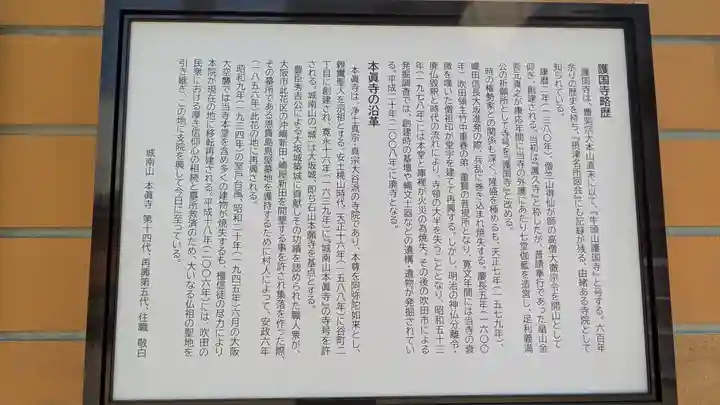 護国寺略歴
護国寺は、曹洞宗大本山直末にして、『牛頭山護国寺』と号する。六百年
余りの歴史を持ち、『摂津名所図会』にも記録が残る、由緒ある寺院として
知られている。
康暦二年(一三八〇年)、僧竺山得仙が師の高僧大徹宗令を開山として
仰ぎ、創建される。当初は『護久寺』と称したが、普請奉行であった畠山金
吾元清之が康応年間に当寺の外護にあたり七堂伽藍を造営し、足利義満
公の祈願所として寺号を『護国寺』と改める。
時の権勢家との関係も深く、隆盛を極めるも、天正七年(一五七九年)、
織田信長大坂進発の際、兵乱に巻き込まれ焼失する。慶長五年(一六〇〇
年)、吹田領主竹中重春の弟、重賢の菩提所となり、寛文年間には当寺の衰
微を嘆いた僧祖印が堂宇を建てて再興する。しかし、明治の神仏分離令・
廃仏毀釈と時代の流れにより、寺領の大半を失うこととなり、昭和五十三
年(一九七八年)には本堂と庫裡が火災の為焼失。その後の吹田市による
発掘調査では、創建時の基壇や縄文土器などの遺構・遺物が発掘されてい
る。平成二十年(二〇〇八年)に廃寺となる。
本眞寺の沿革
本眞寺は、浄土真宗・真宗大谷派の寺院であり、本尊を阿弥陀如来とし、
親鸞聖人を宗祖とする。安土桃山時代、天正十六年(一五八八年)に谷町二
丁目に創建され、寛永十六年(一六三九年)に『城南山本眞寺』の寺号を許
される。城南山の「城」は大坂城、即ち石山本願寺を基点とする。
豊臣秀吉公による大坂城築城に貢献しその功績を認められた職人衆が、
大阪市此花区の沖嶋新田・嶋屋新田を開墾する事を許され集落を作った際、
その墓所である恩貴島島屋墓地を護持するために村人によって、安政六年
(一八五六年)此花の地に再興される。
昭和九年(一九三四年)の室戸台風、昭和二十年(一九四五年)六月の大阪
大空襲では当寺本堂を含め多くの建物が焼失するも、檀信徒の尽力により
本院が現在の地に移転再建される。平成十八年(二〇〇六年)には、吹田の
民衆における厚き信仰心の相続と墓所救済のため、大いなる仏祖の聖地を
引き継ぎ、この地に支院を興して今日に至っている。
城南山 本眞寺 第十四代、再興第五代、住職 敬白